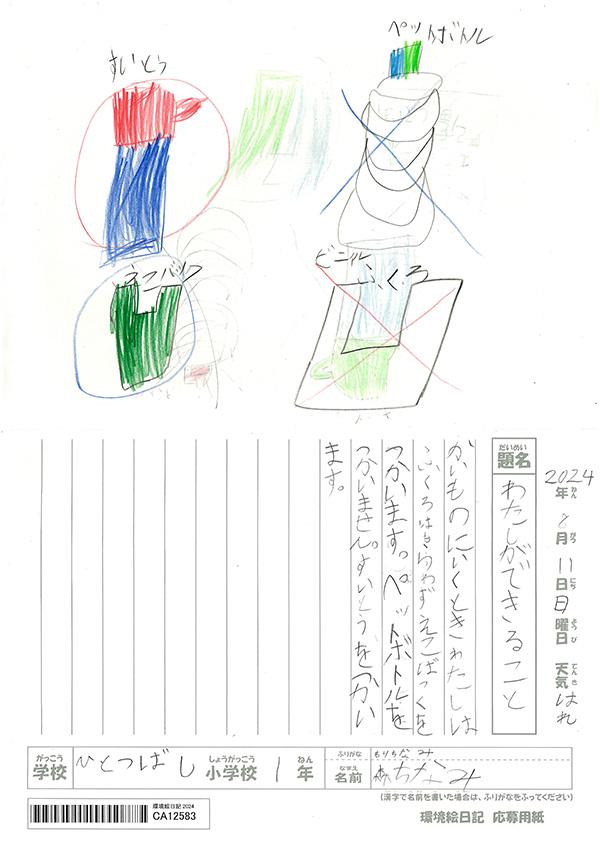 すいとう
ペットボトル
えこバック
ビニル
ふくろ
2024年ねん 8月がつ 11日にち 日曜日ようび 天気てんき はれ
だいめい
題名 わたしができること
かいものにいくときわたしは
ふくろはもらわずえこばっくを
つかいます。ペットボトルを
つかいません。すいとうをつかい
ます。
がっこう しょうがっこう ねん
学校 ひとつばし 小学校 1年
ふりがな もりちなみ
なまえ
名前 ちなみ
(漢字で名前を書いた場合は、ふりがなをふってください)
環境絵日記2024
CA12583
環境絵日記 応募用紙